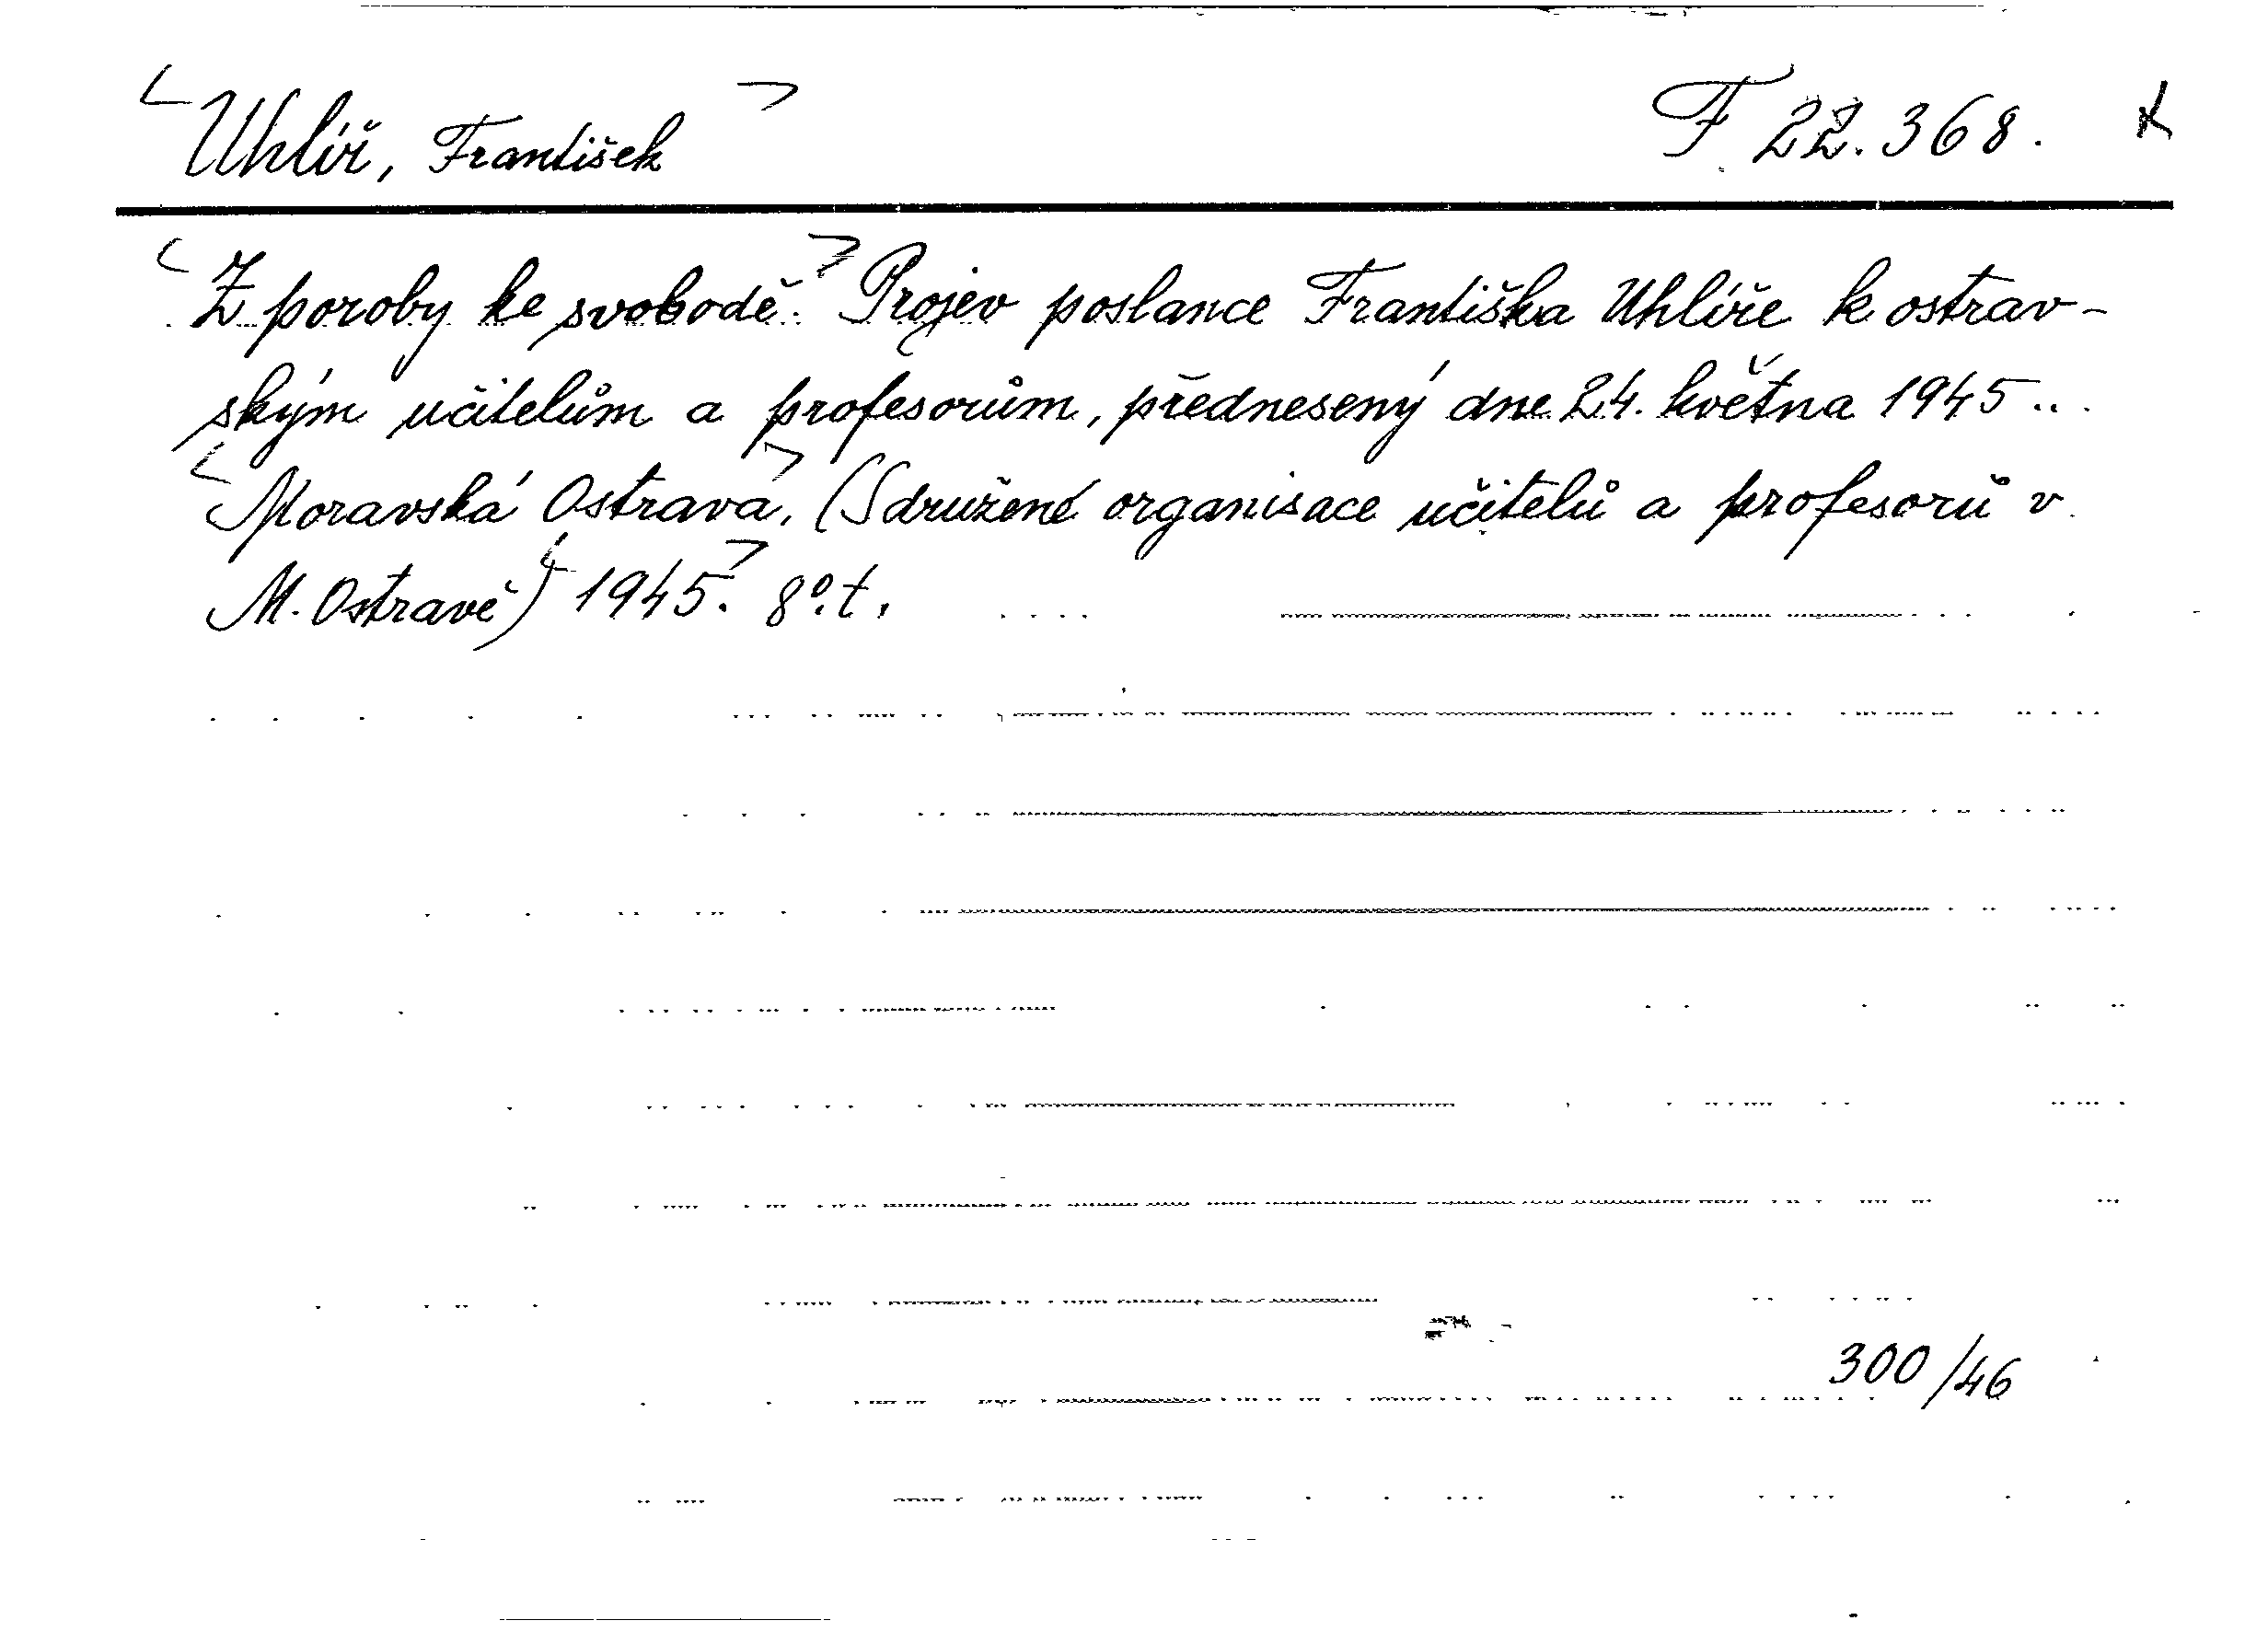 Uhlíř, František F 22.368.
Z poroby ke svobodě. Projev poslance Františka Uhlíře k ostrav-
ským učitelům a profesorům, přednesený dne 24. května 1945...
Moravská Ostrava, (Sdružené organisace učitelů a profesorů v
M. Ostravě) 1945. 8° t.
300/46